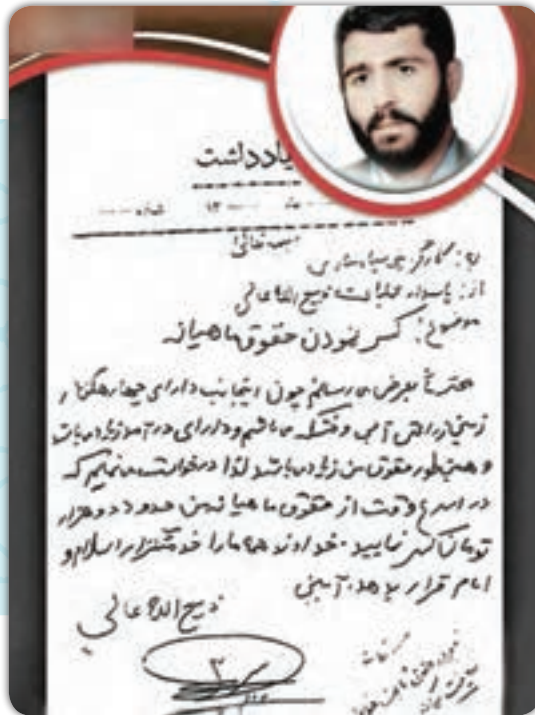 یادداشت
شماره
بسمه تعالی
به: کارگزینی سپاه ساری
از: پاسدار عملیات ذبیح الله عالی
موضوع: کسر نمودن حقوق ماهیانه
محترماً بعرض می‌رسانم چون اینجانب دارای چهار هکتار
زمین زراعتی آبی و خشکه می‌باشم و دارای درآمد زیاد می‌باشد
و همینطور حقوق من زیاد می‌باشد لذا درخواست می‌نمایم که
در اسرع وقت از حقوق ماهیانه من حدود دو هزار
تومان کسر نمایید. خداوند همه ما را خدمتگزار اسلام و
امام قرار بدهد. آمین
ذبیح الله عالی